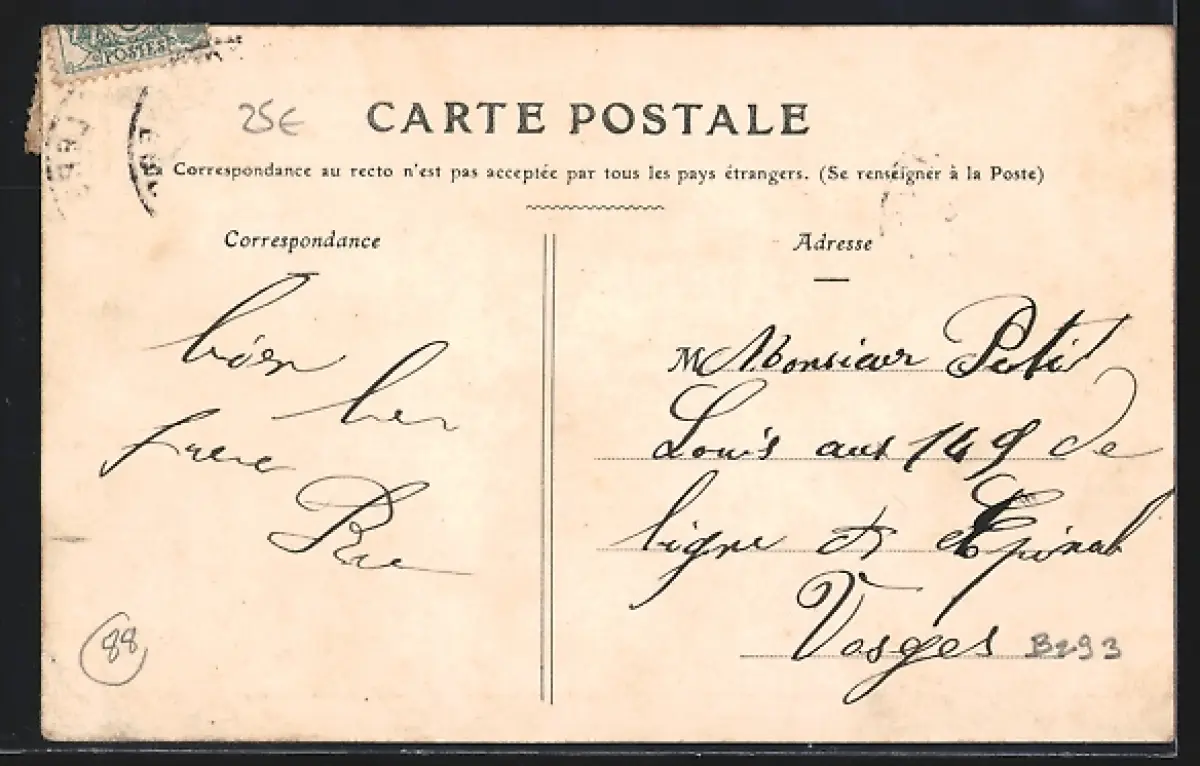 POSTES
25€
CARTE POSTALE
La Correspondance au recto n'est pas acceptée par tous les pays étrangers. (Se renseigner à la Poste)
Correspondance
Adresse
bien
frere
M Monsieur Petit
Louis aux 149 de
ligne à Epinal
Vosges
88
B293